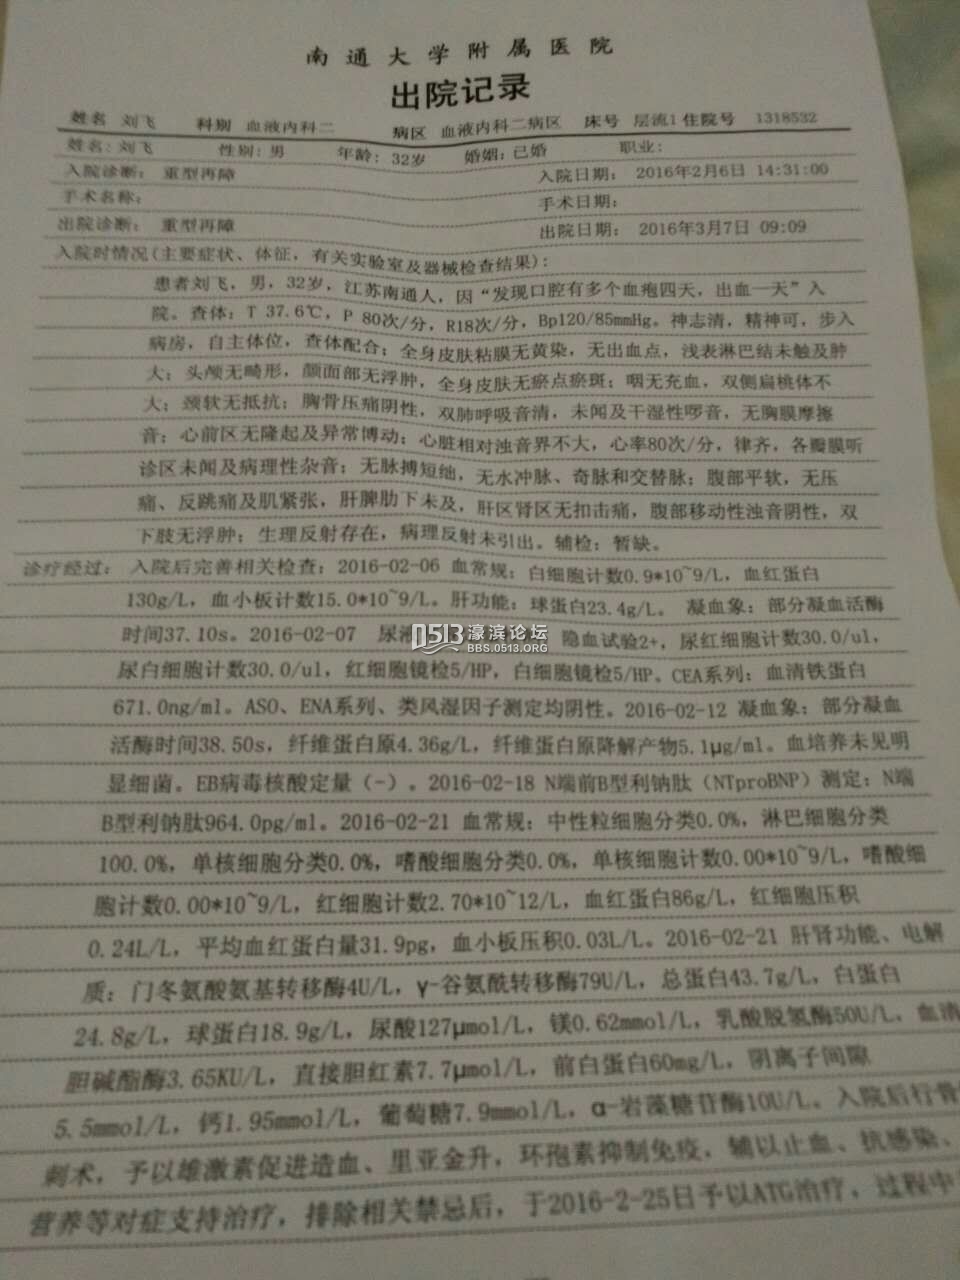 南通大学附属医院
出院记录
姓名 刘飞 科别 血液内科二 病区 血液内科二病区 床号 层流1 住院号 1318532
姓名: 刘飞 性别: 男 年龄: 32岁 婚姻: 已婚 职业:
入院诊断: 重型再障 入院日期: 2016年2月6日 14:31:00
手术名称: 手术日期:
出院诊断: 重型再障 出院日期: 2016年3月7日 09:09
入院时情况(主要症状、体征，有关实验室及器械检查结果):
患者刘飞，男，32岁，江苏南通人，因“发现口腔有多个血疱四天，出血一天”入
院。查体: T 37.6℃, P 80次/分, R18次/分, Bp120/85mmHg。神志清，精神可，步入
病房，自主体位，查体配合; 全身皮肤粘膜无黄染，无出血点，浅表淋巴结未触及肿
大; 头颅无畸形，颜面部无浮肿，全身皮肤无瘀点瘀斑; 咽无充血，双侧扁桃体不
大; 颈软无抵抗; 胸骨压痛阴性，双肺呼吸音清，未闻及干湿性啰音，无胸膜摩擦
音; 心前区无隆起及异常博动; 心脏相对浊音界不大，心率80次/分，律齐，各瓣膜听
诊区未闻及病理性杂音; 无脉搏短绌，无水冲脉、奇脉和交替脉; 腹部平软，无压
痛、反跳痛及肌紧张，肝脾肋下未及，肝区肾区无扣击痛，腹部移动性浊音阴性，双
下肢无浮肿; 生理反射存在，病理反射未引出。辅检: 暂缺。
诊疗经过: 入院后完善相关检查: 2016-02-06 血常规: 白细胞计数0.9*10~9/L, 血红蛋白
130g/L, 血小板计数15.0*10~9/L。肝功能: 球蛋白23.4g/L。 凝血象: 部分凝血活酶
时间37.10s。2016-02-07 尿液 隐血试验2+, 尿红细胞计数30.0/ul,
0513 濠滨论坛
BBS.0513.ORG
尿白细胞计数30.0/ul, 红细胞镜检5/HP, 白细胞镜检5/HP。CEA系列: 血清铁蛋白
671.0ng/ml。ASO、ENA系列、类风湿因子测定均阴性。2016-02-12 凝血象: 部分凝血
活酶时间38.50s, 纤维蛋白原4.36g/L, 纤维蛋白原降解产物5.1μg/ml。血培养未见明
显细菌。EB病毒核酸定量（-）。2016-02-18 N端前B型利钠肽（NTproBNP）测定: N端
B型利钠肽964.0pg/ml。2016-02-21 血常规: 中性粒细胞分类0.0%, 淋巴细胞分类
100.0%, 单核细胞分类0.0%, 嗜酸细胞分类0.0%, 单核细胞计数0.00*10~9/L, 嗜酸细
胞计数0.00*10~9/L, 红细胞计数2.70*10~12/L, 血红蛋白86g/L, 红细胞压积
0.24L/L, 平均血红蛋白量31.9pg, 血小板压积0.03L/L。2016-02-21 肝肾功能、电解
质: 门冬氨酸氨基转移酶4U/L, γ-谷氨酰转移酶79U/L, 总蛋白43.7g/L, 白蛋白
24.8g/L, 球蛋白18.9g/L, 尿酸127μmol/L, 镁0.62mmol/L, 乳酸脱氢酶50U/L, 血清
胆碱酯酶3.65KU/L, 直接胆红素7.7μmol/L, 前白蛋白60mg/L, 阴离子间隙
5.5mmol/L, 钙1.95mmol/L, 葡萄糖7.9mmol/L, α-岩藻糖苷酶10U/L。入院后行骨
刺术，予以雄激素促进造血、里亚金升，环孢素抑制免疫，辅以止血、抗感染、
营养等对症支持治疗，排除相关禁忌后，于2016-2-25日予以ATG治疗，过程中